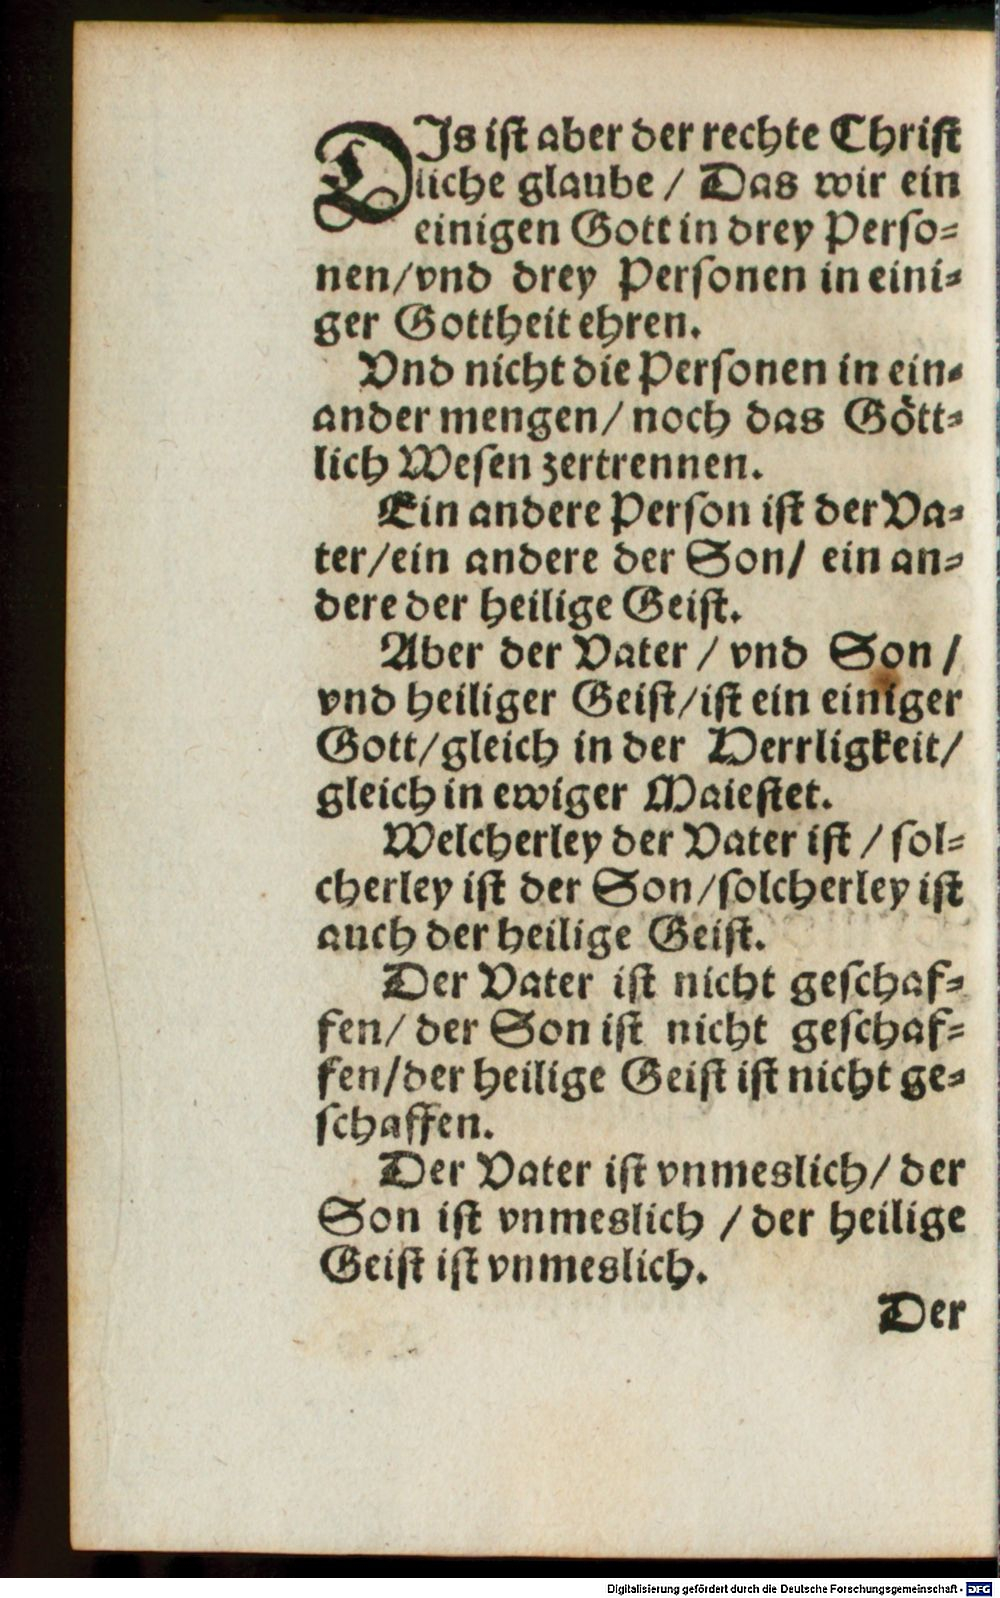 DJs ist aber der rechte Christ
liche glaube / Das wir ein
einigen Gott in drey Perso-
nen/vnd drey Personen in eini-
ger Gottheit ehren.
Vnd nicht die Personen in ein-
ander mengen/ noch das Gött-
lich Wesen zertrennen.
Ein andere Person ist der Va-
ter/ein andere der Son/ ein an-
dere der heilige Geist.
Aber der Vater / vnd Son /
vnd heiliger Geist/ist ein einiger
Gott/gleich in der Herrligkeit/
gleich in ewiger Maiestet.
Welcherley der Vater ist / sol-
cherley ist der Son/solcherley ist
auch der heilige Geist.
Der Vater ist nicht geschaf-
fen/ der Son ist nicht geschaf-
fen/der heilige Geist ist nicht ge-
schaffen.
Der Vater ist vnmeslich/ der
Son ist vnmeslich / der heilige
Geist ist vnmeslich.
Der
Digitalisierung gefördert durch die Deutsche Forschungsgemeinschaft - DFG